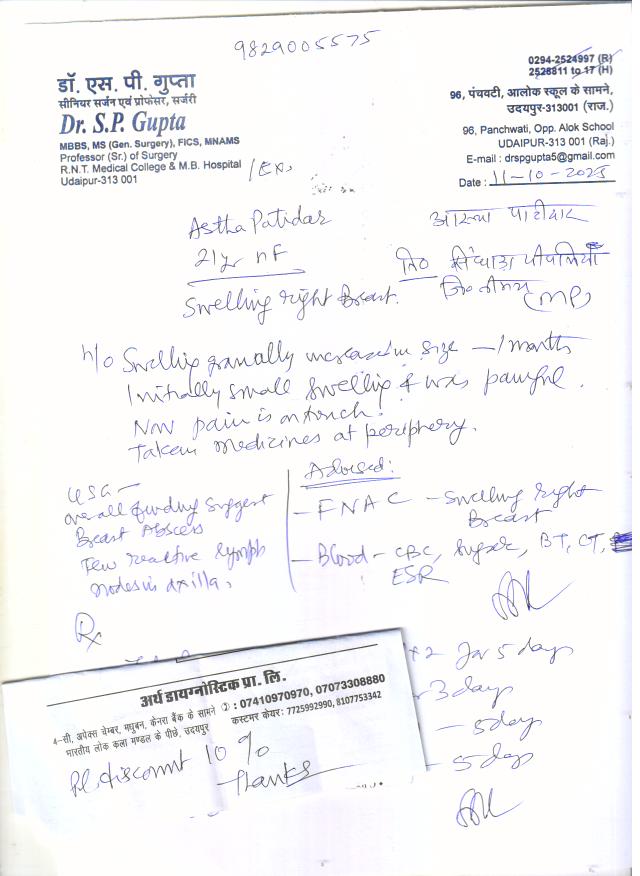 9829005575
डॉ. एस. पी. गुप्ता
सीनियर सर्जन एवं प्रोफेसर, सर्जरी
Dr. S.P. Gupta
MBBS, MS (Gen. Surgery), FICS, MNAMS
Professor (Sr.) of Surgery
R.N.T. Medical College & M.B. Hospital /Ex.
Udaipur-313 001
0294-2524997 (R)
2528811 to 17 (H)
96, पंचवटी, आलोक स्कूल के सामने,
उदयपुर-313001 (राज.)
96, Panchwati, Opp. Alok School
UDAIPUR-313 001 (Raj.)
E-mail : drspgupta5@gmail.com
Date : 11-10-2025
Astha Patidar
21yr F
आस्था पाटीदार
नि०
(MP)
Swelling right Breast.
h/o Swelling gradually increase in size — 1 months
Initially small swelling & was painful.
Now pain is on touch.
Taken medicines at periphery.
USG —
overall finding suggest
Breast Abscess
Few reactive lymph
nodes in axilla.
Advised:
- FNAC - Swelling right
Breast
- Blood - CBC, Sugar, BT, CT,
ESR
Rx
x 2 for 5 days
3 days
- 5 days
- 5 days
अर्थ डायग्नोस्टिक प्रा. लि.
4-सी, अपेक्स चेम्बर, मधुबन, केनरा बैंक के सामने ✆ : 07410970970, 07073308880
भारतीय लोक कला मण्डल के पीछे, उदयपुर कस्टमर केयर: 7725992990, 8107753342
Pl. discount 10 %
Thanks